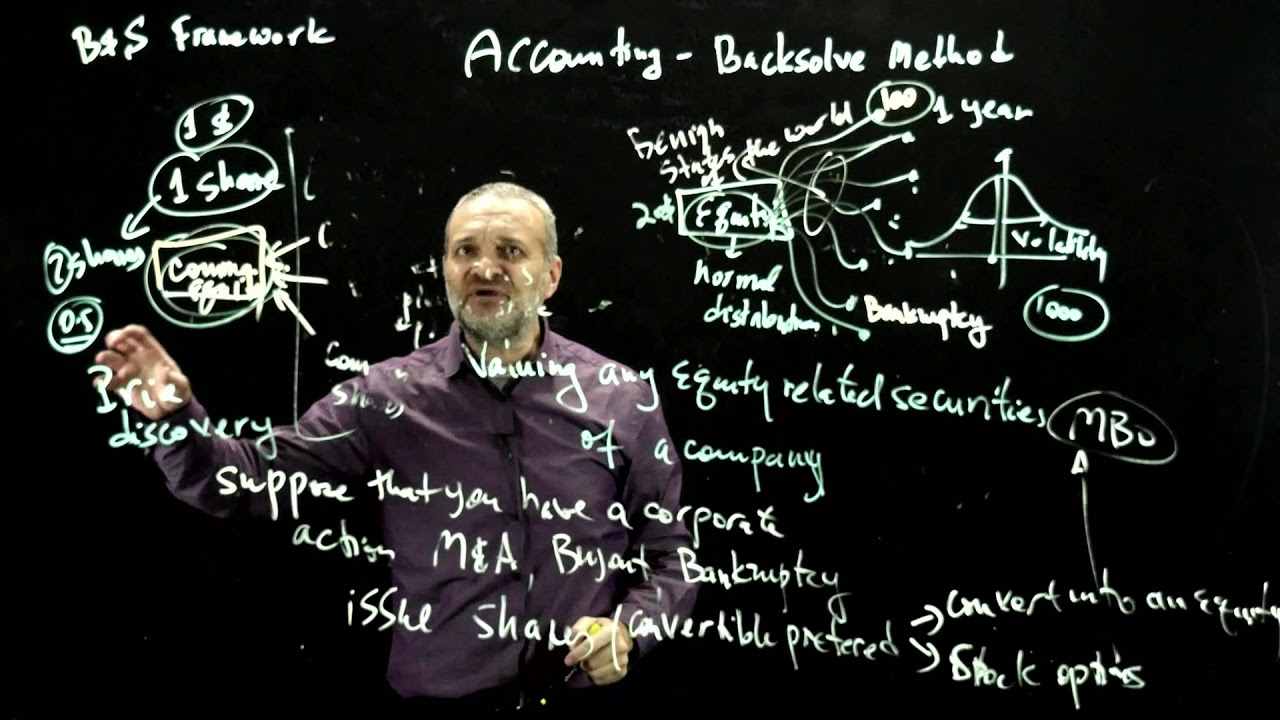 B&S Framework
Accounting - Backsolve Method
1 $
1 share
2 shares
0.5
Price
discovery
Benign
states of the world
100
1 year
Equity
Normal
distribution
volatility
Bankruptcy
1000
Valuing any Equity related securities
of a company
MBO
suppose that you have a corporate
action M&A Buyout Bankruptcy
issue shares / convertible prefered
convert into an equity
Stock options